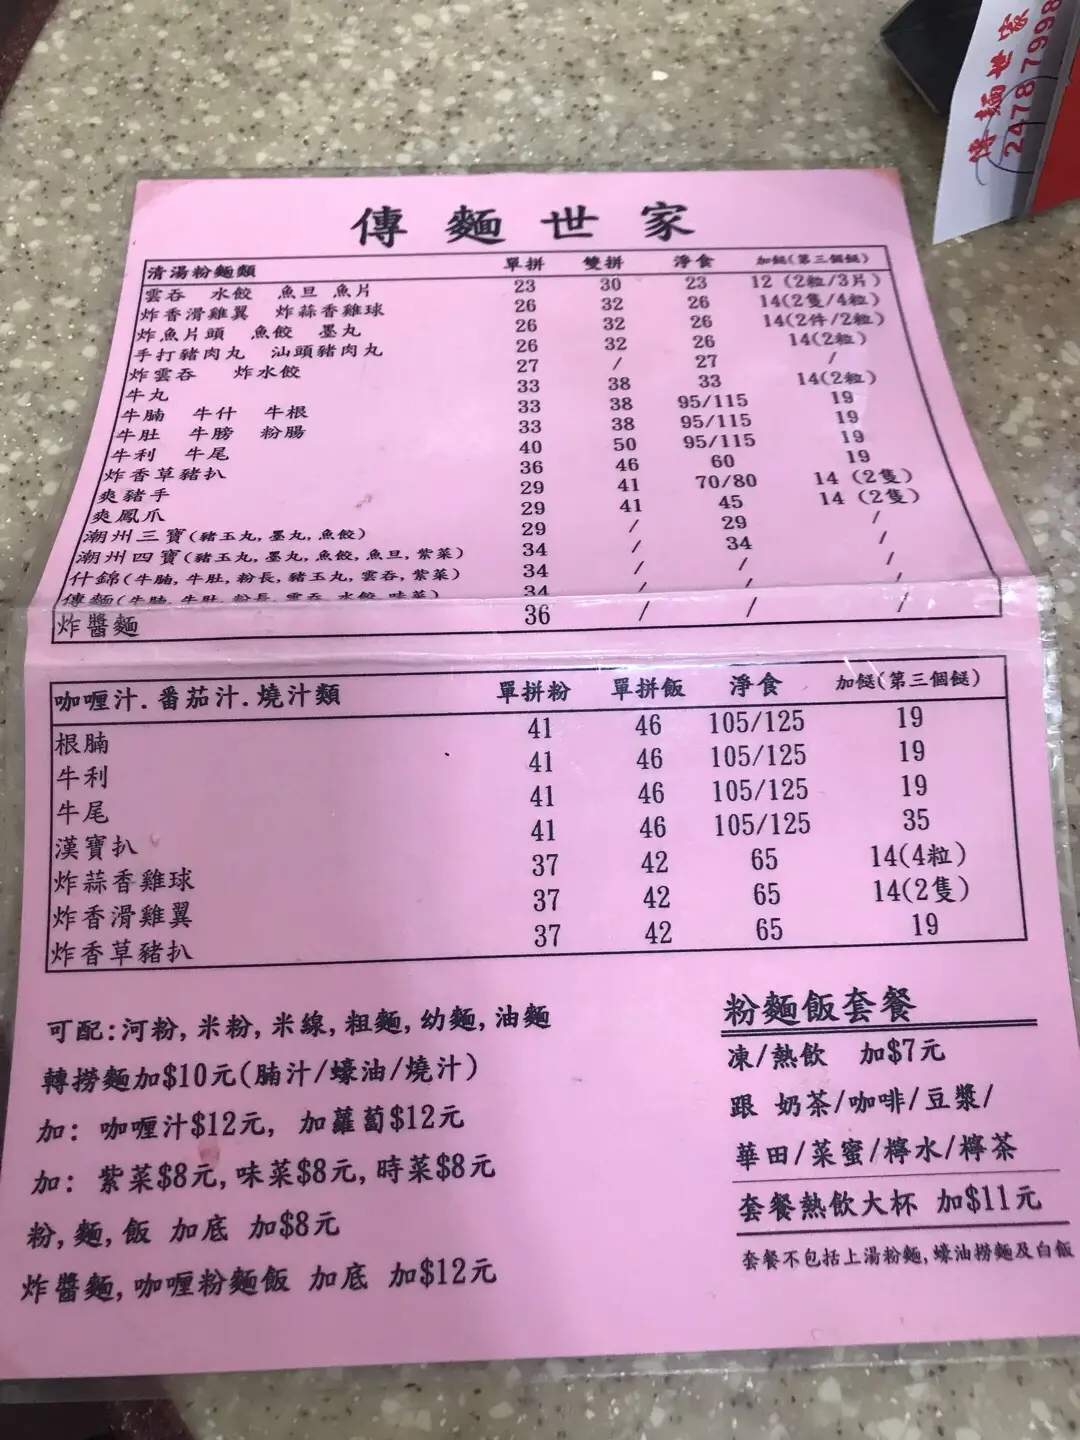 傳麵世家
2478 7998
傳麵世家
清湯粉麵類 單拼 雙拼 淨食 加餸(第三個餸)
雲吞 水餃 魚旦 魚片 23 30 23 12 (2粒/3片)
炸香滑雞翼 炸蒜香雞球 26 32 26 14(2隻/4粒)
炸魚片頭 魚餃 墨丸 26 32 26 14(2件/2粒)
手打豬肉丸 汕頭豬肉丸 26 32 26 14(2粒)
炸雲吞 炸水餃 27 / 27 /
牛丸 33 38 33 14(2粒)
牛腩 牛什 牛根 33 38 95/115 19
牛肚 牛膀 粉腸 33 38 95/115 19
牛利 牛尾 40 50 95/115 19
炸香草豬扒 36 46 60 19
爽豬手 29 41 70/80 14 (2隻)
爽鳳爪 29 41 45 14 (2隻)
潮州三寶(豬玉丸,墨丸,魚餃) 29 / 29 /
潮州四寶(豬玉丸,墨丸,魚餃,魚旦,紫菜) 34 / 34 /
什錦(牛腩,牛肚,粉長,豬玉丸,雲吞,紫菜) 34 / / /
傳麵(牛腩,牛肚,粉長,雲吞,水餃,味菜) 34 / / /
炸醬麵 36 / / /
咖喱汁.番茄汁.燒汁類 單拼粉 單拼飯 淨食 加餸(第三個餸)
根腩 41 46 105/125 19
牛利 41 46 105/125 19
牛尾 41 46 105/125 19
漢寶扒 41 46 105/125 35
炸蒜香雞球 37 42 65 14(4粒)
炸香滑雞翼 37 42 65 14(2隻)
炸香草豬扒 37 42 65 19
可配:河粉,米粉,米線,粗麵,幼麵,油麵
轉撈麵加$10元(腩汁/蠔油/燒汁)
加: 咖喱汁$12元, 加蘿蔔$12元
加: 紫菜$8元,味菜$8元,時菜$8元
粉,麵,飯 加底 加$8元
炸醬麵,咖喱粉麵飯 加底 加$12元
粉麵飯套餐
凍/熱飲 加$7元
跟 奶茶/咖啡/豆漿/
華田/菜蜜/檸水/檸茶
套餐熱飲大杯 加$11元
套餐不包括上湯粉麵,蠔油撈麵及白飯